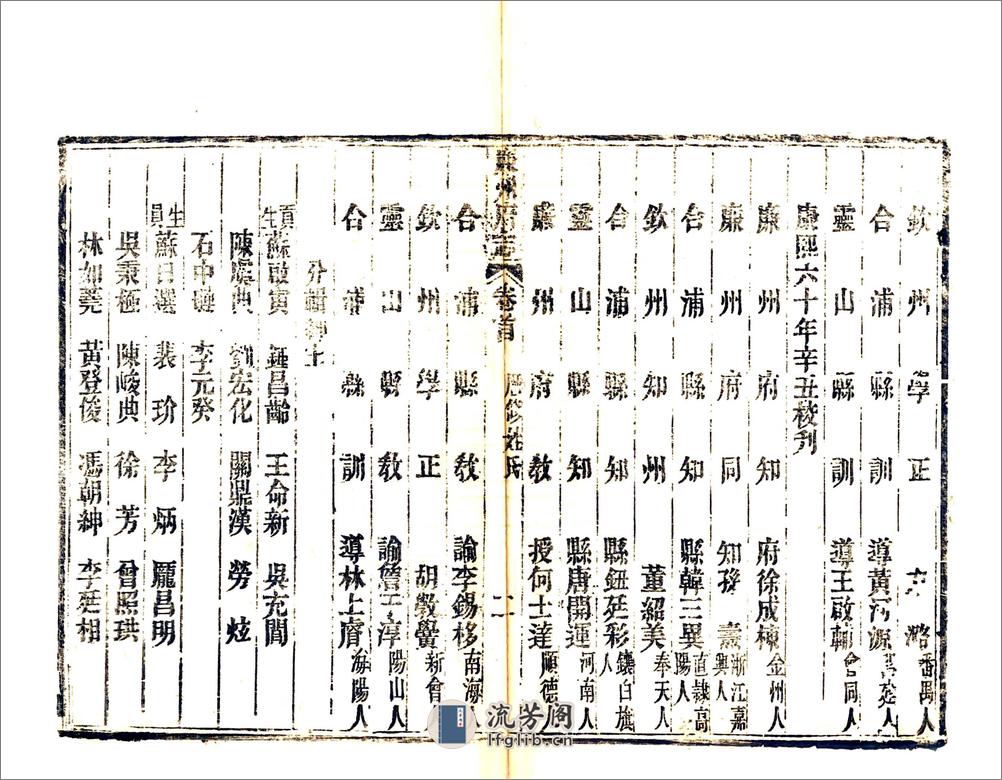 欽州學正 略番禺人
合浦縣訓導黃河源
靈山縣訓導王啟輔會同人
康熙六十年辛丑校刊
廉州府知府徐成棟金州人
廉州府同知孫 浙江嘉興人
合浦縣知縣韓三異直隸高陽人
欽州知州董紹美奉天人
合浦縣知縣鈕廷彩鑲白旗人
靈山縣知縣唐開運河南人
廉州府教授何士達順德
廉州府志 卷首 歷修姓氏 二
合浦縣教諭李錫移南海
欽州學正胡斆黌新會
靈山縣教諭詹 淳陽山人
合浦縣訓導林上膺海陽人
分輯紳士
貢生蘇啟寅 鍾昌齡 王命新 吳充閭
陳虞典 劉宏化 關鼎漢 勞炫
石中 李元癸
生員蘇日選 裴玠 李炳 龐昌明
吳秉極 陳峻典 徐芳 曾照珙
林如 黃登俊 馮朝紳 李廷相
流芳阁
lfglib.cn